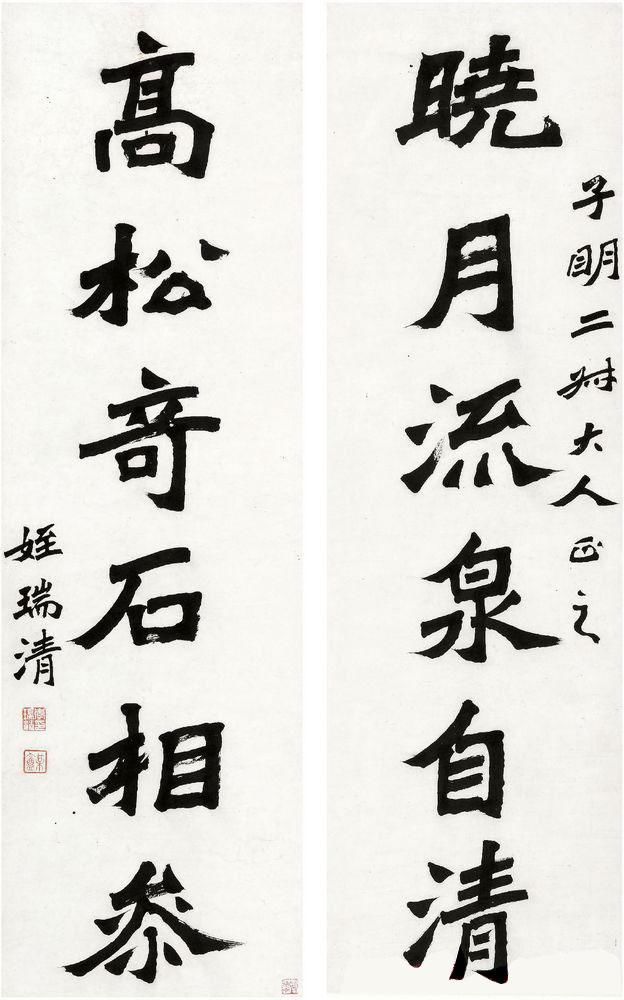 曉月流泉自清
子明二叔大人正之
高松奇石相參
姪瑞清